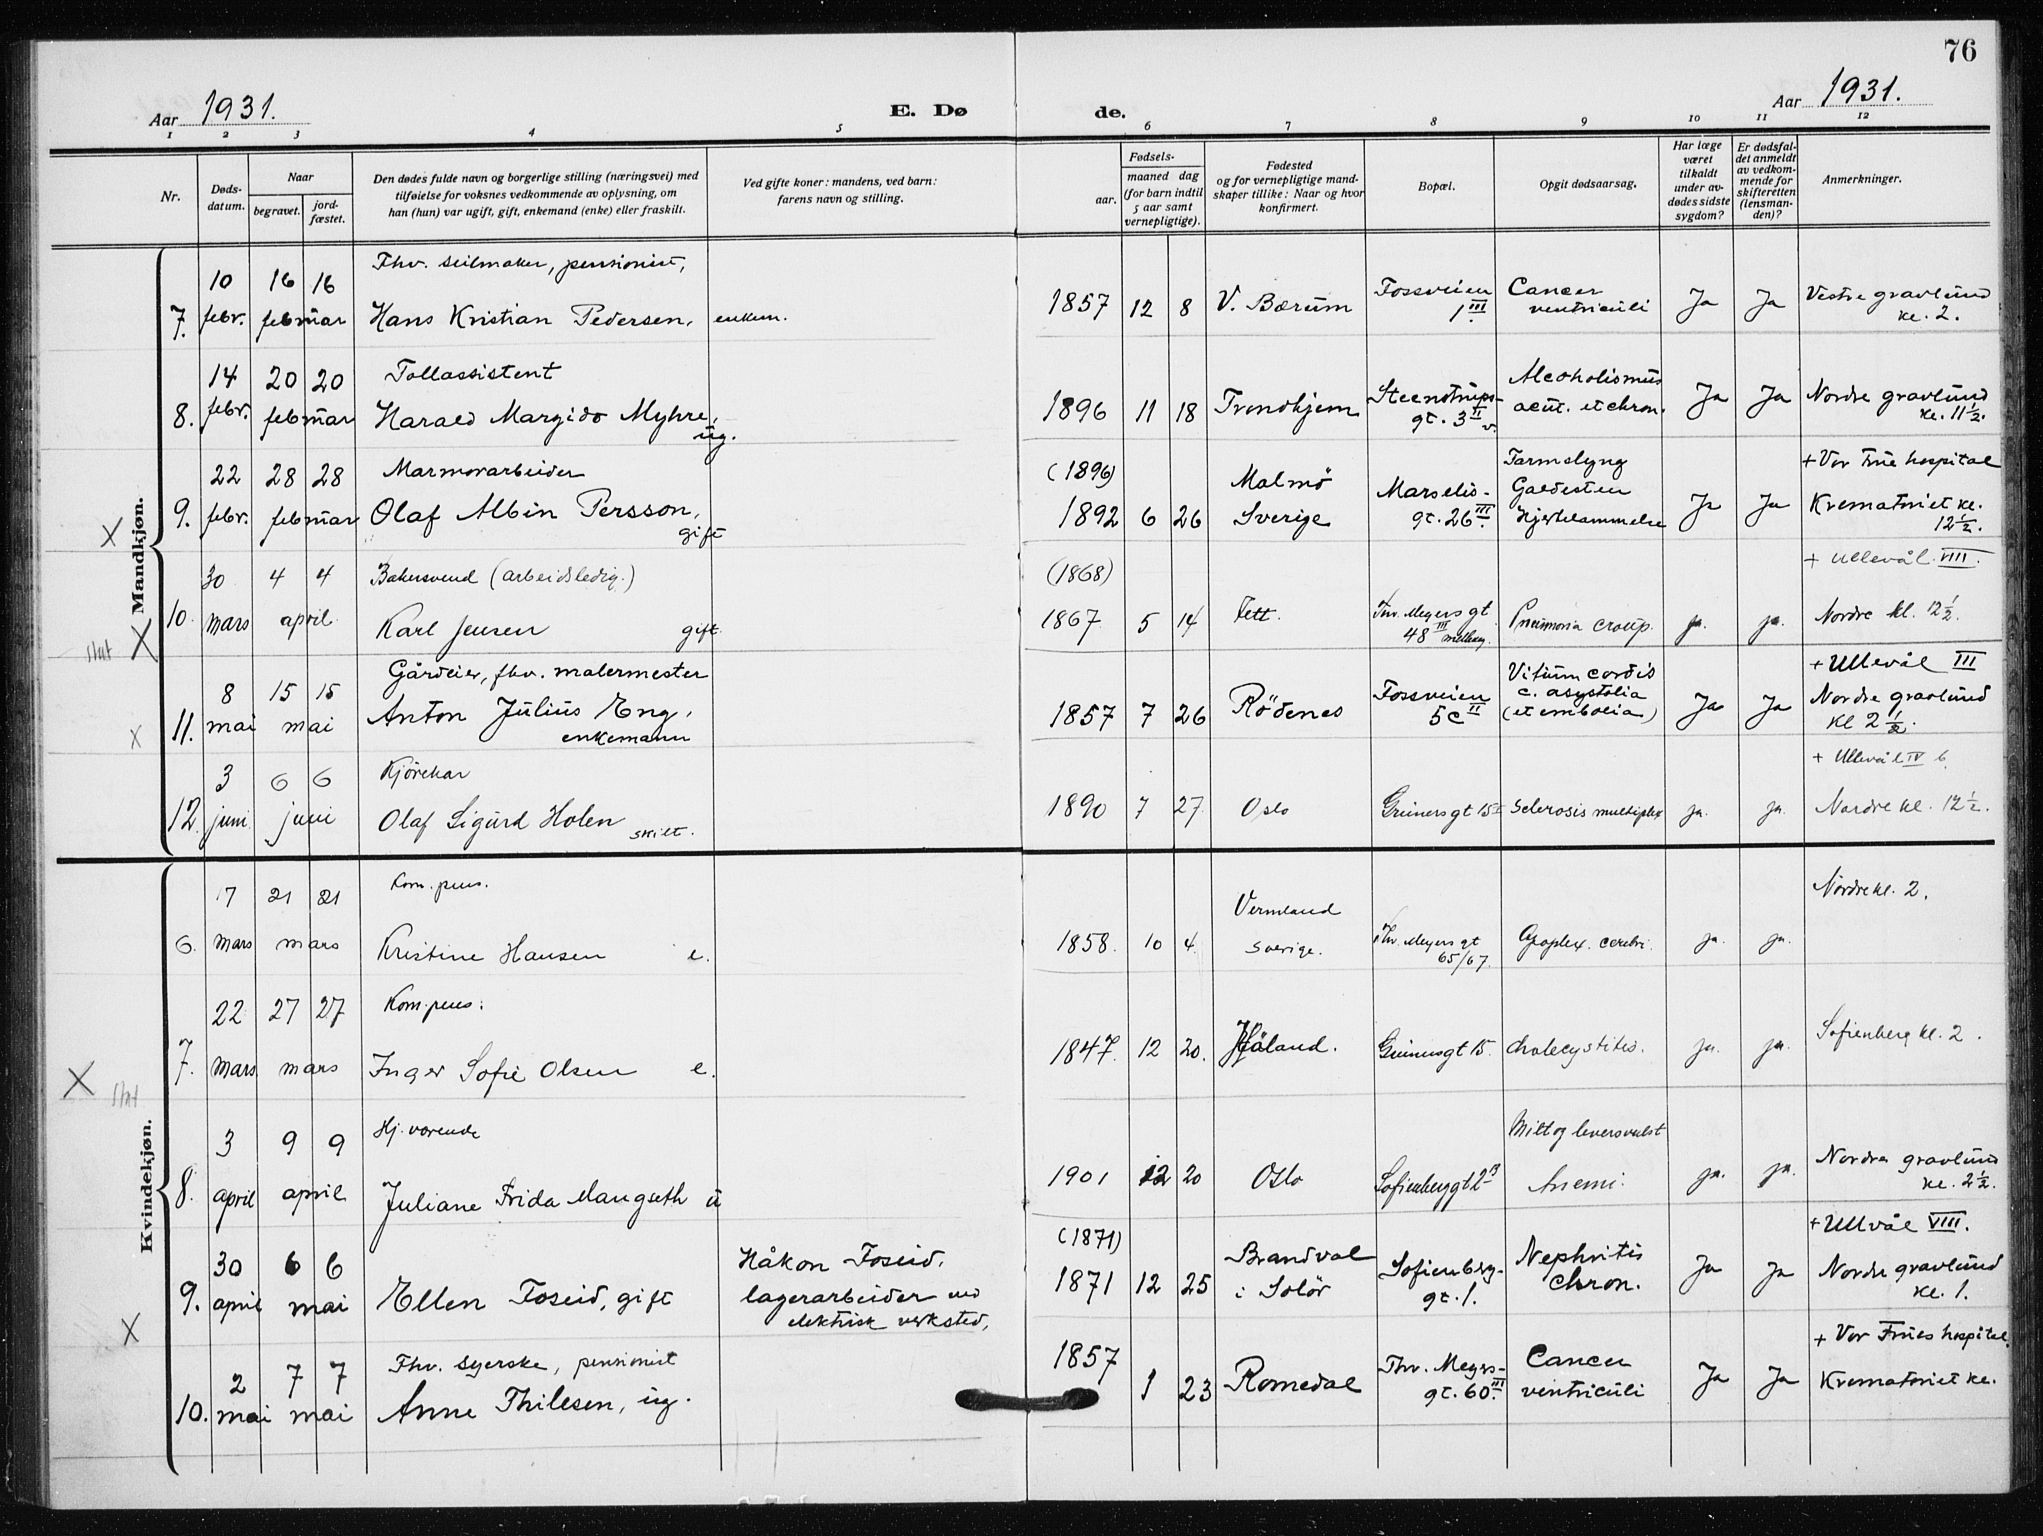 76
Aar 1931.
E. Dø
de.
Aar 1931.
1 2 3 4 5 6 7 8 9 10 11 12
Nr.
Døds-
datum.
Naar
begravet.
jord-
fæstet.
Den dødes fulde navn og borgerlige stilling (næringsvei) med
tilføielse for voksnes vedkommende av oplysning, om
han (hun) var ugift, gift, enkemand (enke) eller fraskilt.
Ved gifte koner: mandens, ved barn:
farens navn og stilling.
Fødsels-
aar.
maaned dag
(for barn indtil
5 aar samt
vernepligtige).
Fødested
og for vernepligtige mand-
skaper tillike: Naar og hvor
konfirmert.
Bopæl.
Opgit dødsaarsag.
Har læge
været
tilkaldt
under av-
dødes sidste
sygdom?
Er dødsfal-
det anmeldt
av vedkom-
mende for
skifteretten
(lensman-
den)?
Anmerkninger.
Mandkjøn.
10 16 16 Fhv. seilmaker, pensionist, Fossveien Cancer Vestre gravlund
7. febr. februar Hans Kristian Pedersen, enkem. 1857 12 8 V. Bærum 1 III ventriculi Ja Ja kl. 2.
14 20 20 Tollassistent Steenstrups- Alcoholismus Nordre gravlund
8. febr. februar Harald Margido Myhre, 1896 11 18 Trondhjem gt. 3 II v. acut. et chron. Ja Ja kl. 11 1/2.
ug.
22 28 28 Marmorarbeider (1896) Malmö Tarmslyng + Vor Frue hospital
9. febr. februar Olaf Albin Persson, 1892 6 26 Sverige Marselis- Galdesten Ja Ja Krematoriet kl.
X gift gt. 26 III. Hjertelammelse 12 1/2.
30 4 4 Bakersvend (arbeidsledig.) (1868) + Ullevål VIII.
10. mars april Karl Jensen gift 1867 5 14 Fett. Thv. Meyers gt Pneumonia croup. ja. ja. Nordre kl. 12 1/2.
X 48 III mellem.
Gårdeier, fhv. malermester Vitium cordis + Ullevål III
8 15 15 Fossveien c. asystolia Nordre gravlund
11. mai mai Anton Julius Eng, 1857 7 26 Rödenes 5c II (et embolia) Ja Ja kl 2 1/2.
x enkemann
3 6 6 Kjörekar + Ullevål IV 6
12. juni juni Olaf Sigurd Holen skilt. 1890 7 27. Oslo Grünersgt 15 I Sclerosis multiplex ja. ja. Nordre kl. 12 1/2.
Kvindekjøn.
17 21 21 Kom. pens. Vermland Nordre kl. 2.
6. mars mars Kristine Hansen e. 1858. 10 4. Sverige. Thv. Meyers gt Apoplex. cerebri. ja. ja.
65/67.
22 27 27 Kom. pens. Sofienberg kl. 2.
7. mars mars Inger Sofie Olsen e. 1847. 12 20. Håland. Grünersgt 15. cholecystitis. ja. ja.
X
3 9 9 Hj. værende Milt og leversvulst Nordre gravlund
8. april april Juliane Frida Mangseth u 1901 12 20 Oslo Sofienberggt 2 B Anemi. ja. ja. kl. 2 1/2.
30 6 6 Håkon Foseid, (1871) Brandval Sofienberg- Nephritis + Ullvål VIII.
9. april mai Ellen Foseid, gift lagerarbeider ved 1871 12 25 i Solör gt. 1. Chron. Ja Ja Nordre gravlund
X elektrisk verksted, kl. 1.
2 7 7 Fhv. syerske, pensionist 1857 Thv. Meyers- Cancer + Vor Frues hospital.
10. mai mai Anne Thilesen, ug. 1 23 Romedal gt. 60 III. ventriculi Ja Ja Krematoriet kl.